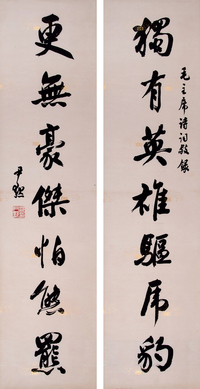 獨有英雄驅虎豹
毛主席詩詞敬錄
更無豪傑怕熊羆
尹默